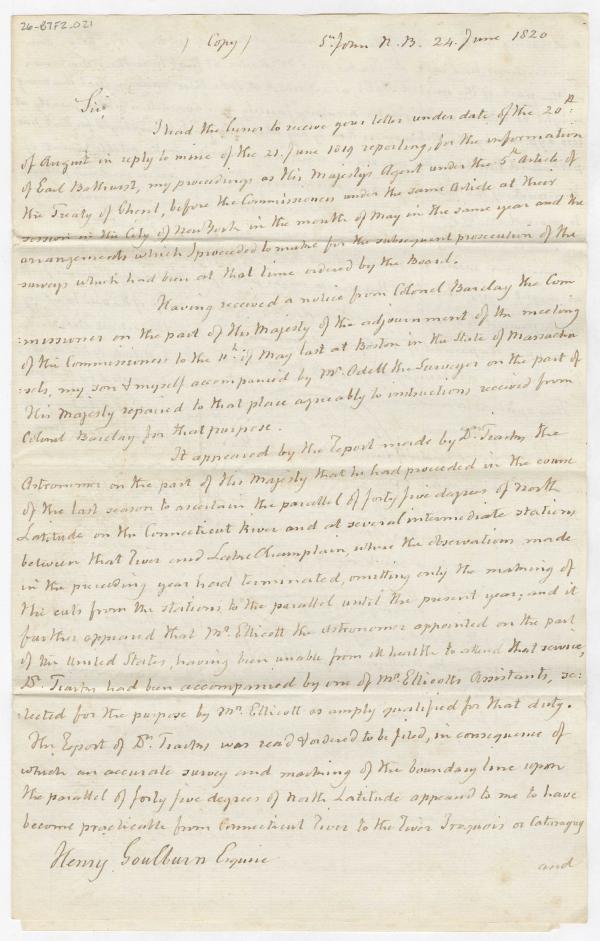 26-B7F2.021
(Copy) St. John N.B. 24. June 1820
Sir,
I had the honor to receive your letter under date of the 20th.
of August in reply to mine of the 21. June 1819 reporting, for the information
of Earl Bathurst, my proceedings as His Majesty's Agent under the 5th. Article of
the Treaty of Ghent, before the Commissioners under the same Article at their
session in the City of New York in the month of May in the same year and the
arrangements which I proceeded to make for the subsequent prosecution of the
surveys which had been at that time ordered by the Board.
Having received a notice from Colonel Barclay the Com
:missioner on the part of His Majesty of the adjournment of the meeting
of the Commissioners to the 11th. of May last at Boston in the State of Massachu
:sets, my son & myself accompanied by Mr. Odell the Surveyor on the part of
His Majesty repaired to that place agreeably to instructions received from
Colonel Barclay for that purpose.
It appeared by the Report made by Dr. Tiarks the
Astronomer on the part of His Majesty that he had proceeded in the course
of the last season to ascertain the parallel of forty five degrees of North
Latitude on the Connecticut River and at several intermediate stations
between that River and Lake Champlain, where the observations made
in the preceding year had terminated, omitting only the making of
the cuts from the stations to the parallel until the present year; and it
further appeared that Mr. Ellicott the Astronomer appointed on the part
of the United States, having been unable from ill health to attend that service,
Dr. Tiarks had been accompanied by one of Mr. Ellicotts Assistants, se:
:lected for the purpose by Mr. Ellicott as amply qualified for that duty.
The Report of Dr. Tiarks was read & ordered to be filed, in consequence of
which an accurate survey and marking of the boundary line upon
the parallel of forty five degrees of North Latitude appeared to me to have
become practicable from Connecticut River to the River Iroquois or Cataraguy
Henry Goulburn Esquire
and